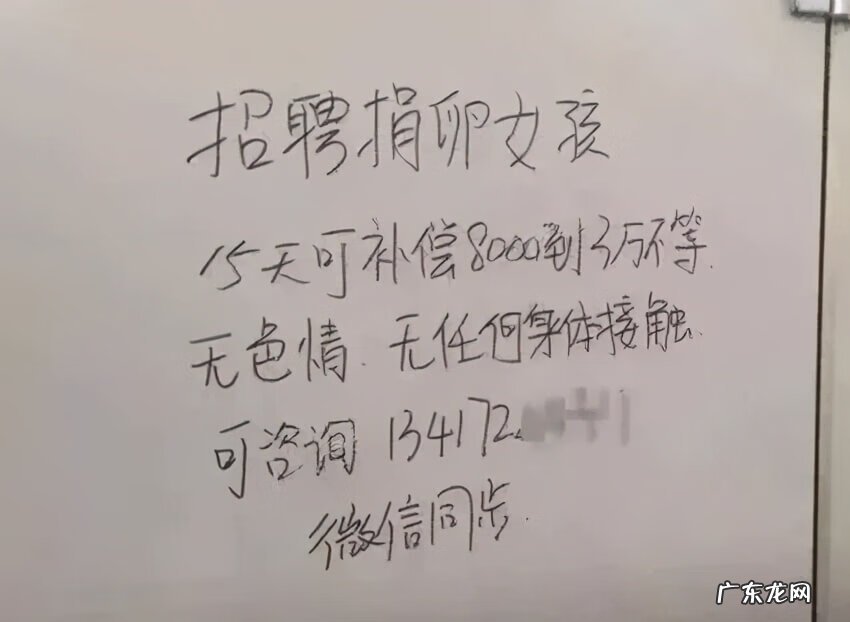 招聘捐卵女孩
15天可补偿8000到3万不等.
无色情.无任何身体接触.
可咨询 134172
微信同步.
广东龙网